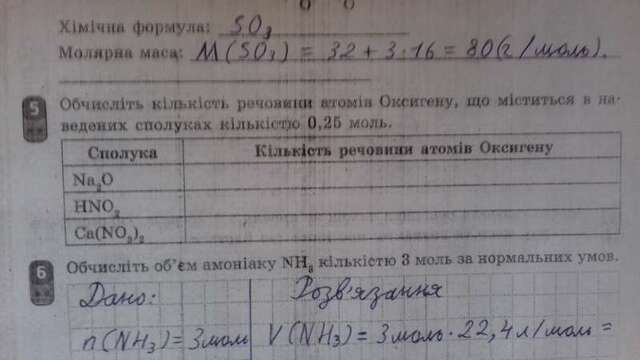 O O
Хімічна формула: SO₃
Молярна маса: M(SO₃) = 32 + 3·16 = 80(г/моль).
5 Обчисліть кількість речовини атомів Оксигену, що міститься в на-
ведених сполуках кількістю 0,25 моль.
Сполука Кількість речовини атомів Оксигену
Na₂O
HNO₂
Ca(NO₃)₂
6 Обчисліть об'єм амоніаку NH₃ кількістю 3 моль за нормальних умов.
Дано: Розв'язання
n(NH₃) = 3моль V(NH₃) = 3моль·22,4л/моль =